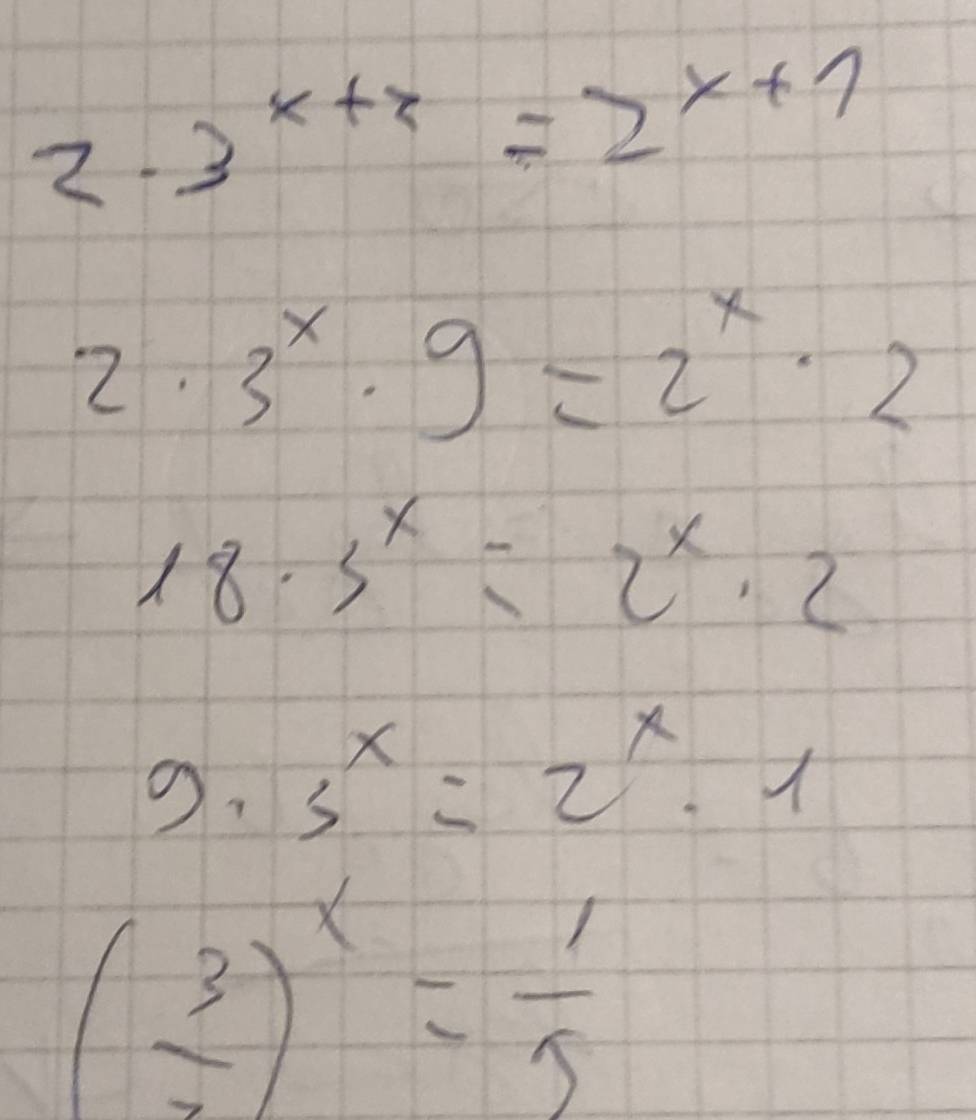 2 · 3^{x+2} = 2^{x+1}
2 · 3^x · 9 = 2^x · 2
18 · 3^x = 2^x · 2
9 · 3^x = 2^x · 1
(3/2)^x = 1/9